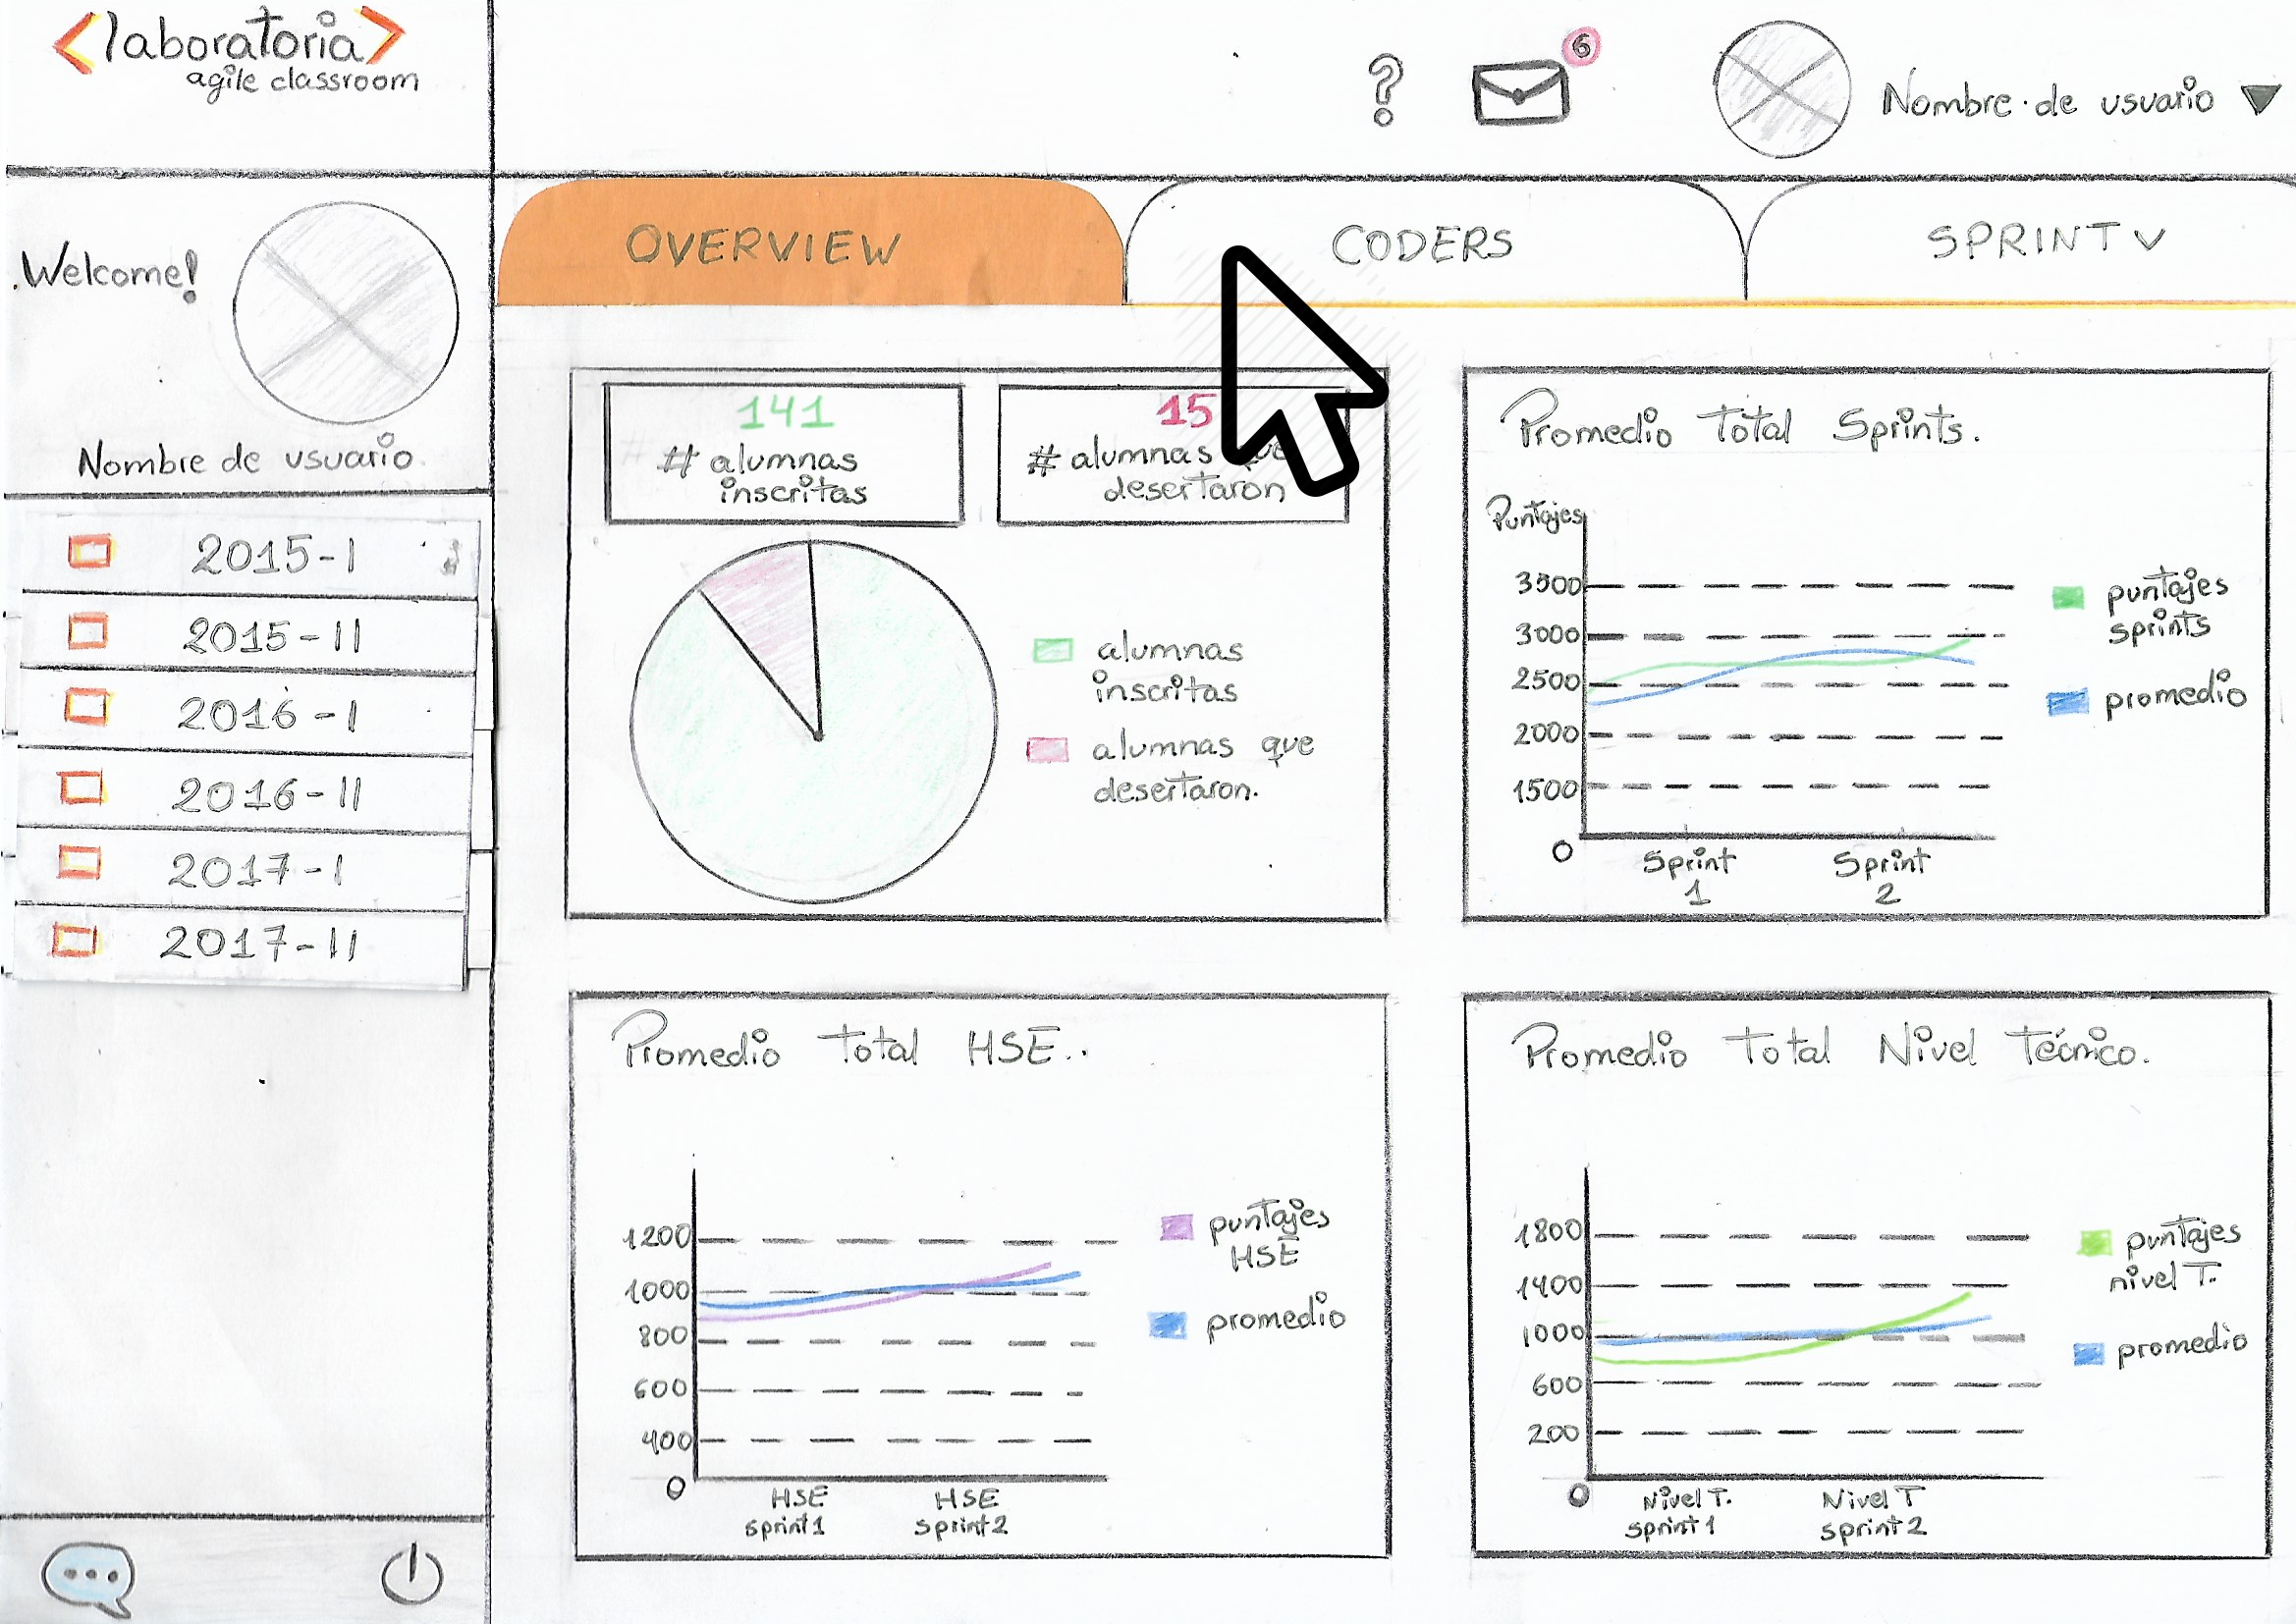 <laboratoria>
agile classroom
?
6
Nombre de usuario
Welcome!
Nombre de usuario
2015-I
2015-II
2016-I
2016-II
2017-I
2017-II
OVERVIEW
CODERS
SPRINT
141
# alumnas
inscritas
15
# alumnas que
desertaron
alumnas
inscritas
alumnas que
desertaron.
Promedio Total Sprints.
Puntajes
3500
3000
2500
2000
1500
0
Sprint
1
Sprint
2
puntajes
sprints
promedio
Promedio Total HSE..
1200
1000
800
600
400
0
HSE
sprint 1
HSE
sprint 2
puntajes
HSE
promedio
Promedio Total Nivel Técnico.
1800
1400
1000
600
200
0
Nivel T.
sprint 1
Nivel T
sprint 2
puntajes
nivel T.
promedio